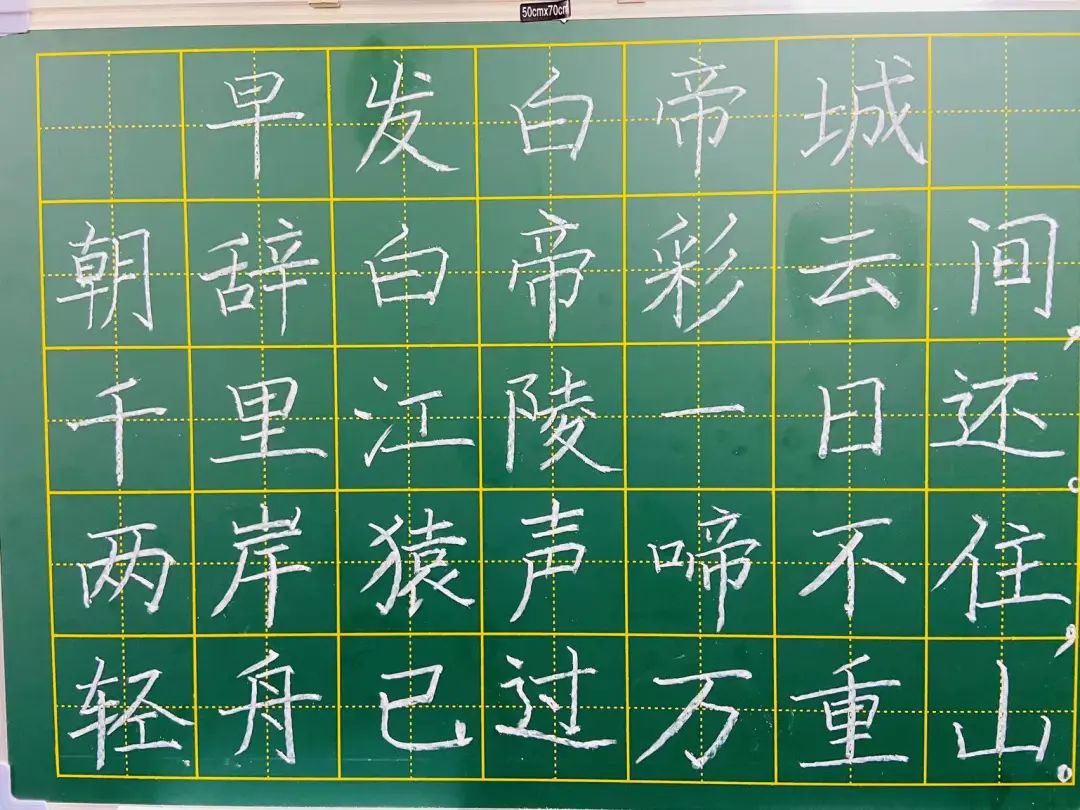 50cmx70cm
早发白帝城
朝辞白帝彩云间，
千里江陵一日还。
两岸猿声啼不住，
轻舟已过万重山。